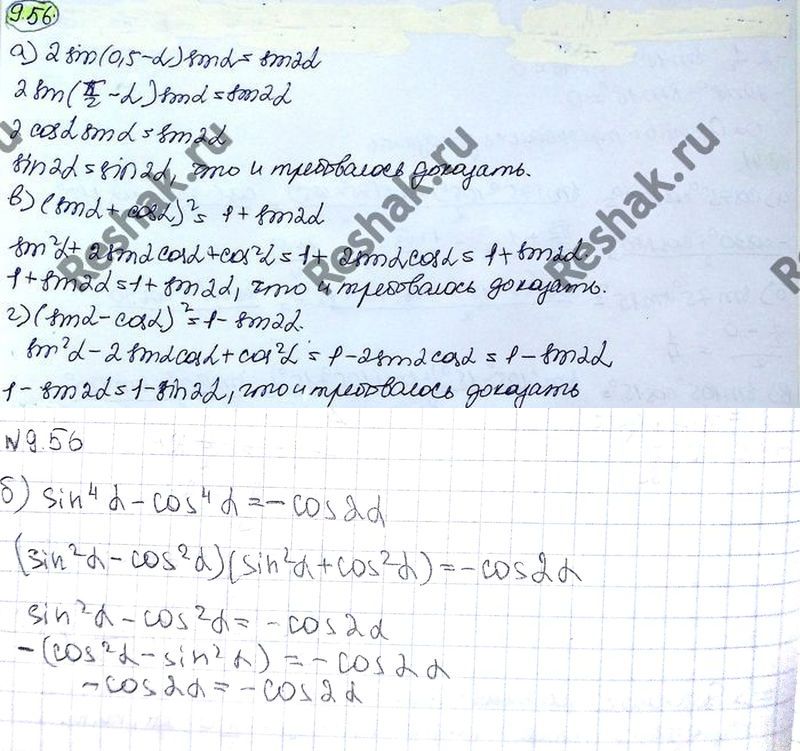 9.56.
а) 2 sin(0,5-α) sinα = sin2α
2 sin(π/2 - α) sinα = sin2α
2 cosα sinα = sin2α
sin2α = sin2α, что и требовалось доказать.
в) (sinα + cosα)² = 1 + sin2α
sin²α + 2sinα cosα + cos²α = 1 + 2sinα cosα = 1 + sin2α.
1 + sin2α = 1 + sin2α, что и требовалось доказать.
г) (sinα - cosα)² = 1 - sin2α.
sin²α - 2 sinα cosα + cos²α = 1 - 2sinα cosα = 1 - sin2α
1 - sin2α = 1 - sin2α, что и требовалось доказать
Reshak.ru
Reshak.ru
Reshak.ru
№9.56
б) sin⁴α - cos⁴α = -cos2α
(sin²α - cos²α)(sin²α + cos²α) = -cos2α
sin²α - cos²α = -cos2α
-(cos²α - sin²α) = -cos2α
-cos2α = -cos2α